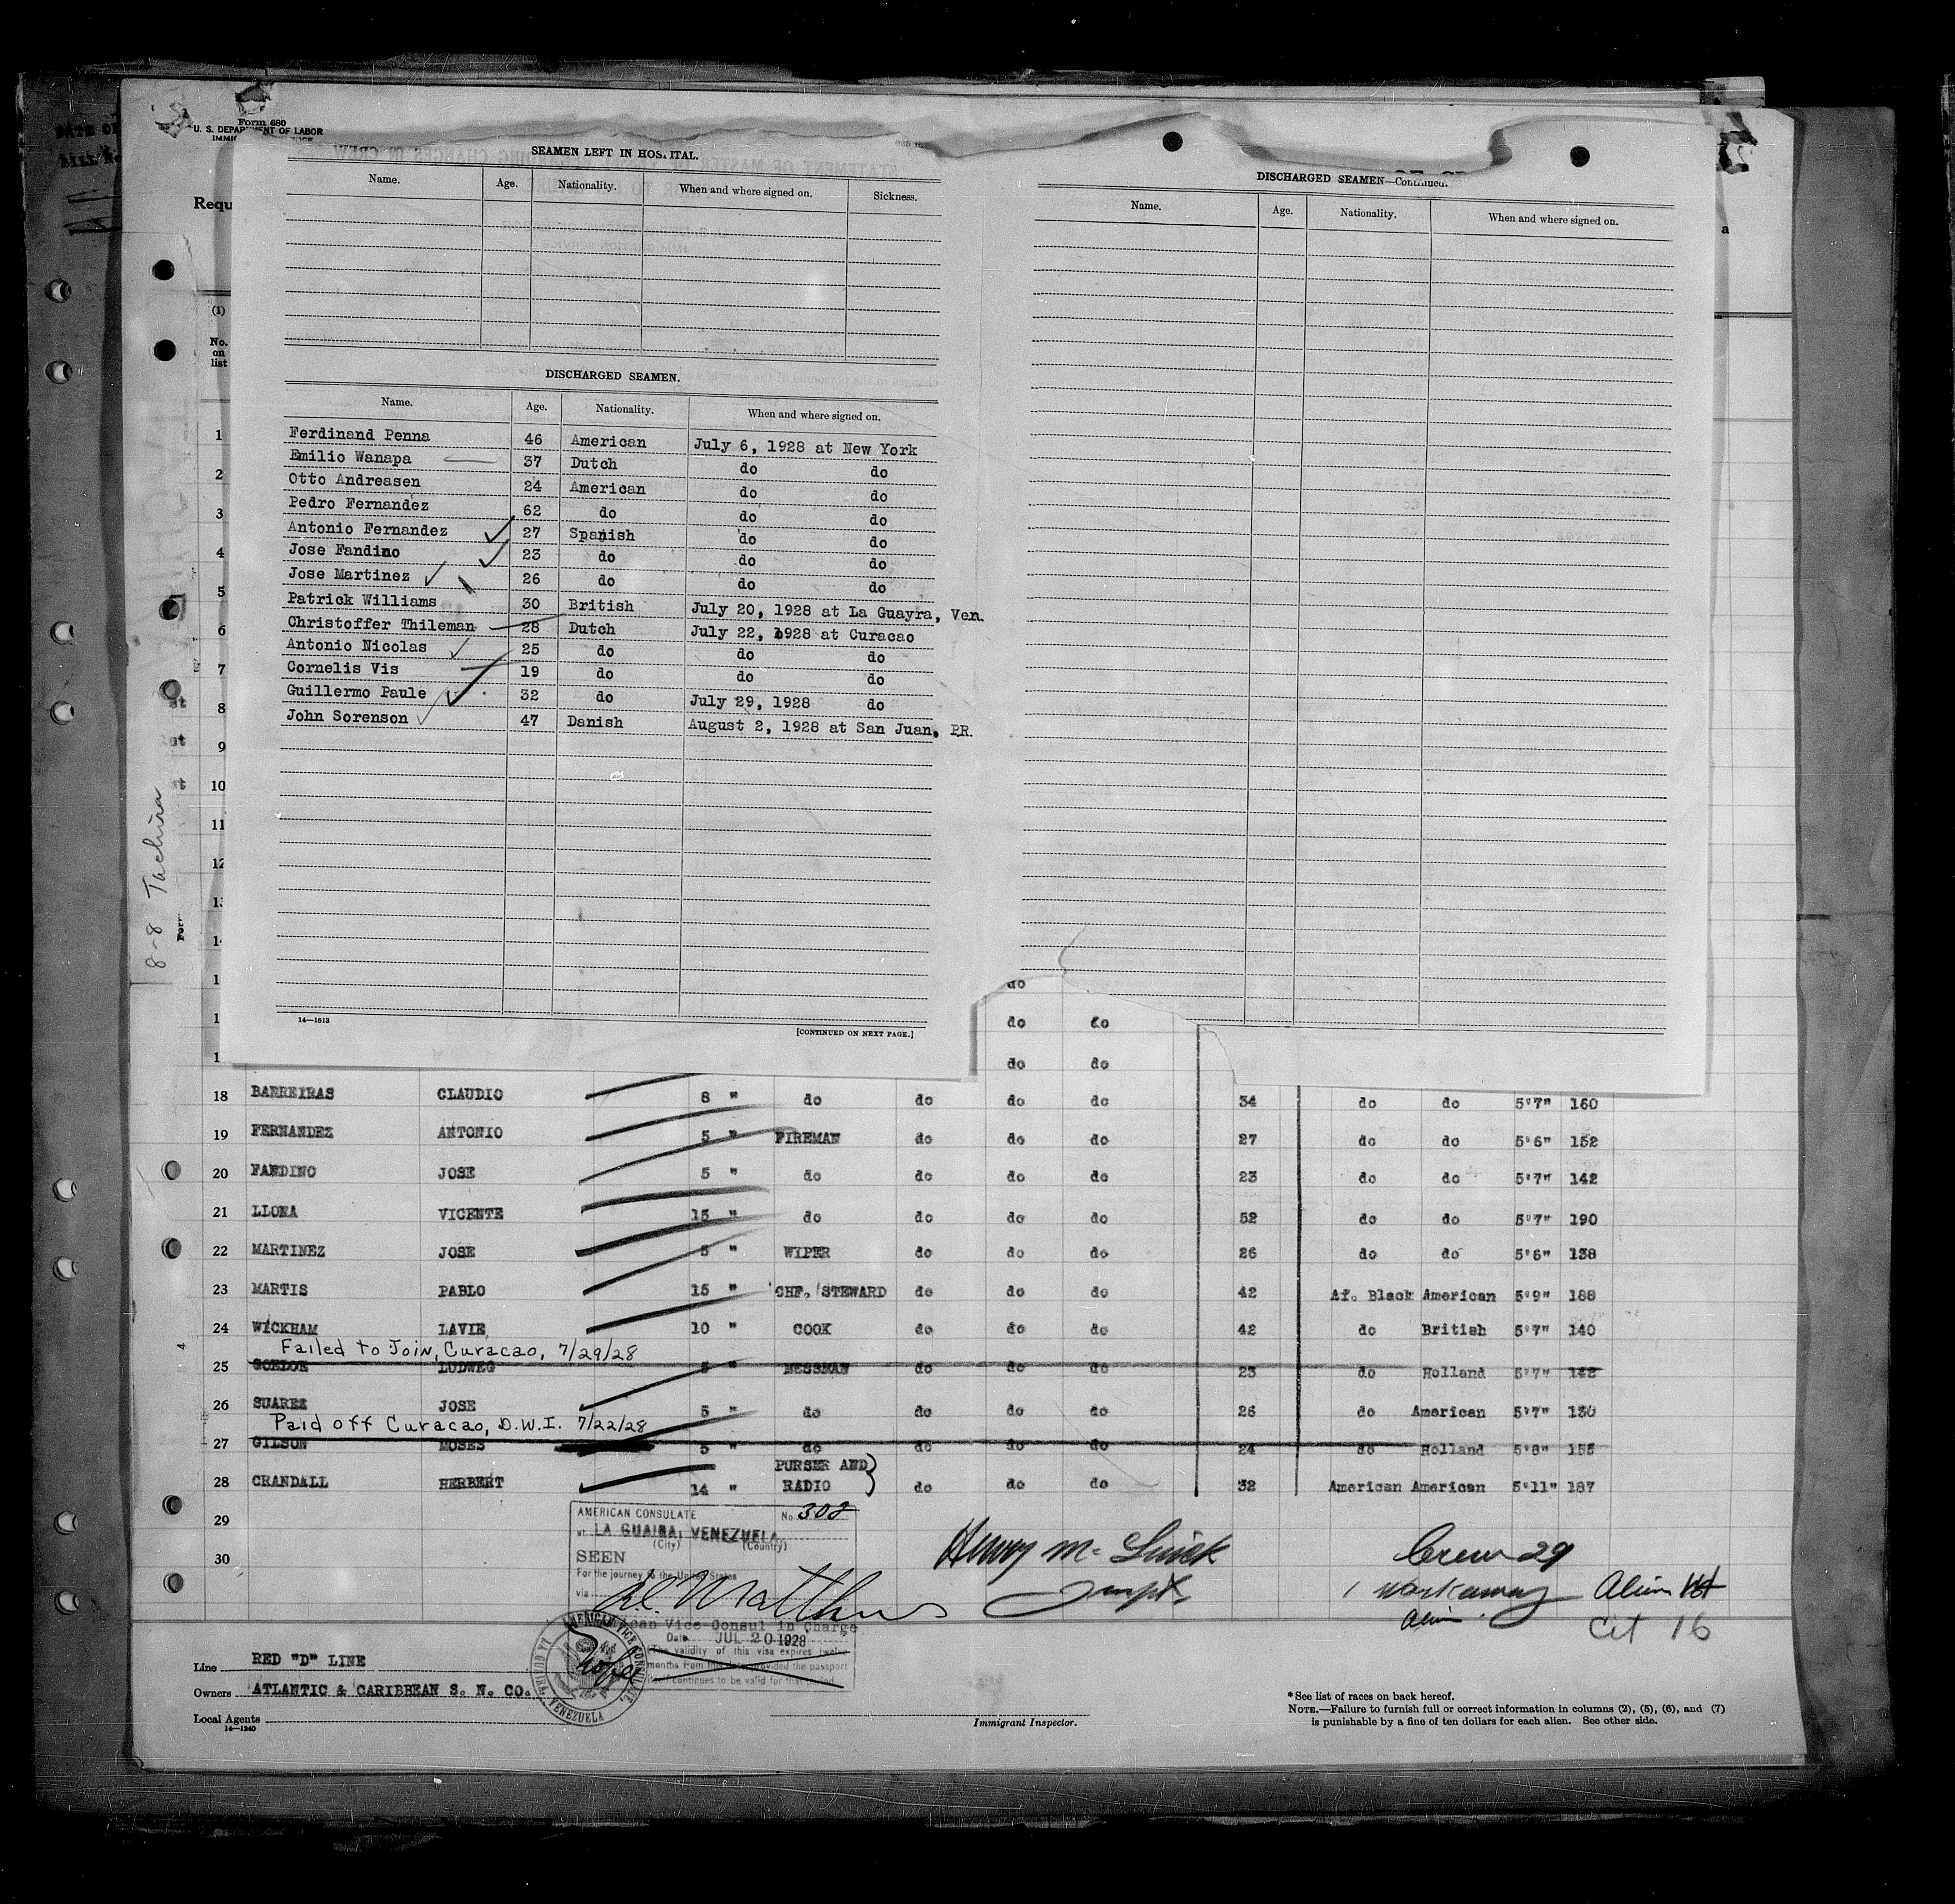 Form 680
U. S. DEPARTMENT OF LABOR
Requ
(1)
No. on list
SEAMEN LEFT IN HOSPITAL.
Name. Age. Nationality. When and where signed on. Sickness.
DISCHARGED SEAMEN.
Name. Age. Nationality. When and where signed on.
Ferdinand Penna 46 American July 6, 1928 at New York
Emilio Wanapa 37 Dutch do do
Otto Andreasen 24 American do do
Pedro Fernandez 62 do do do
Antonio Fernandez 27 Spanish do do
Jose Fandino 23 do do do
Jose Martinez 26 do do do
Patrick Williams 30 British July 20, 1928 at La Guayra, Ven.
Christoffer Thileman 28 Dutch July 22, 1928 at Curacao
Antonio Nicolas 25 do do do
Cornelis Vis 19 do do do
Guillermo Paule 32 do July 29, 1928 do
John Sorenson 47 Danish August 2, 1928 at San Juan, PR.
14—1613
[CONTINUED ON NEXT PAGE.]
DISCHARGED SEAMEN—Continued.
Name. Age. Nationality. When and where signed on.
1
2
3
4
5
6
7
8
9
10
11
12
8-8 Tachira
do
do do
do do
18 BARREIRAS CLAUDIO 8 " do do do do 34 do do 5'7" 160
19 FERNANDEZ ANTONIO 5 " FIREMAN do do do 27 do do 5'6" 152
20 FANDINO JOSE 5 " do do do do 23 do do 5'7" 142
21 LLONA VICENTE 15 " do do do do 52 do do 5'7" 190
22 MARTINEZ JOSE 5 " WIPER do do do 26 do do 5'6" 138
23 MARTIS PABLO 15 " CHF. STEWARD do do do 42 Af. Black American 5'9" 188
24 WICKHAM LAVIE 10 " COOK do do do 42 do British 5'7" 140
Failed to Join, Curacao, 7/29/28
25 LUDWEG 5 " MESSMAN do do do 23 do Holland 5'7" 142
26 SUAREZ JOSE 5 " do do do do 26 do American 5'7" 130
Paid off Curacao, D.W.I. 7/22/28
27 GILSON MOSES 5 " do do do do 24 do Holland 5'8" 155
28 CRANDALL HERBERT 14 " PURSER AND RADIO do do do 32 American American 5'11" 187
29
30
AMERICAN CONSULATE No. 302
at LA GUAIRA, VENEZUELA
(City) (Country)
SEEN
For the journey to the United States
via
American Vice Consul in Charge
Date JUL 20 1928
The validity of this visa expires twelve
months from this date provided the passport
itself continues to be valid for that period
AMERICAN VICE CONSULATE, LA GUAIRA, VENEZUELA
Crew 29
1 workaway Alien
Alien
Cit 16
Line RED "D" LINE
Owners ATLANTIC & CARIBBEAN S. N. CO.
Local Agents
14—1240
Immigrant Inspector.
* See list of races on back hereof.
NOTE.—Failure to furnish full or correct information in columns (2), (5), (6), and (7)
is punishable by a fine of ten dollars for each alien. See other side.